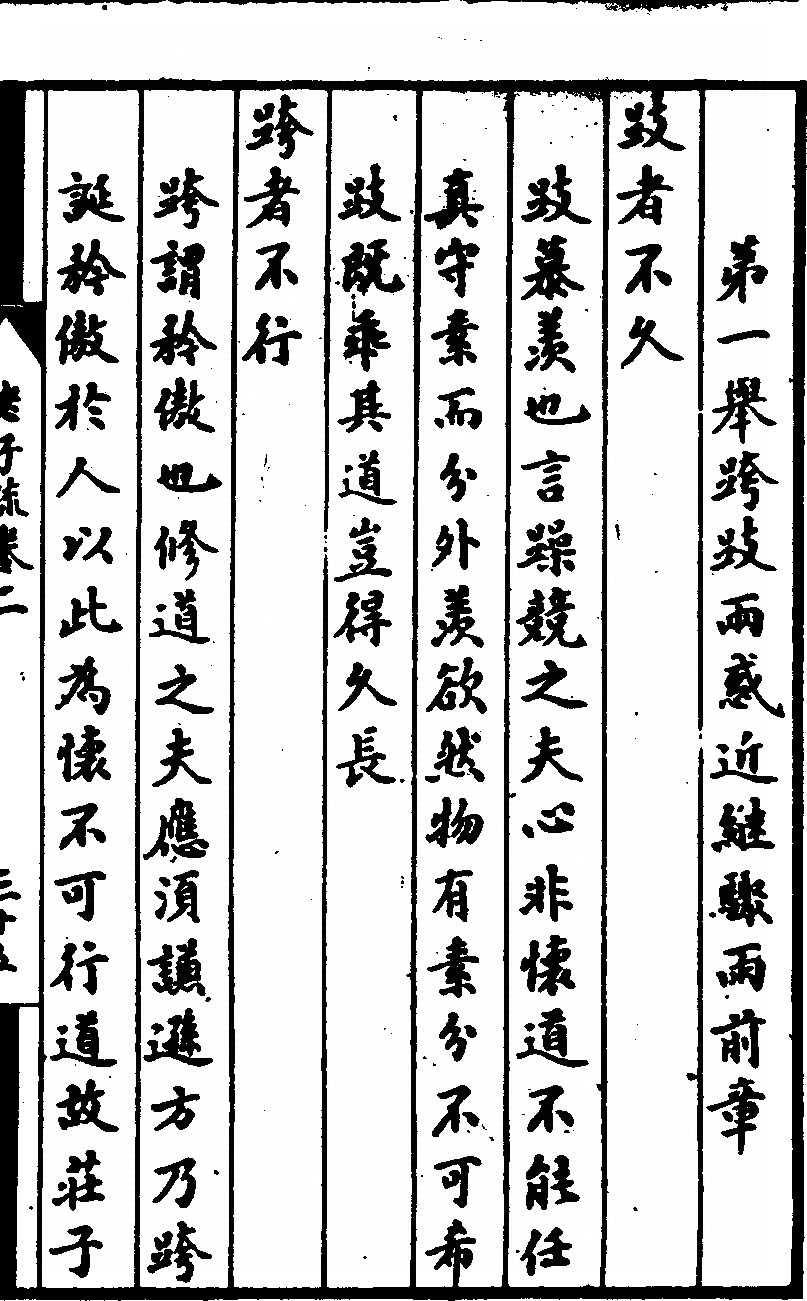 第一舉跨跂兩惑近繼驟雨前章
跂者不久
跂慕羡也言躁競之夫心非懷道不能任
真守素而分外羡欲然物有素分不可希
跂既乖其道豈得久長
跨者不行
跨謂矜傲也修道之夫應須謙遜方乃跨
誕矜傲於人以此為懷不可行道故莊子
老子疏卷二
三十五